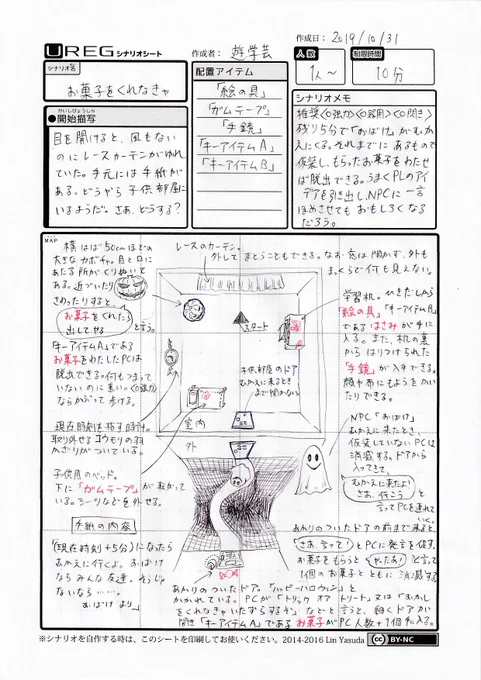 作成日: 2019/10/31
UREG シナリオシート
作成者: 遊学芸
人数
1人〜
制限時間
10分
シナリオ名
お菓子をくれなきゃ
かいしびょうしゃ
●開始描写
目を開けると、風もない
のにレースカーテンがゆれ
ていた。手元には手紙が
ある。どうやら子供部屋に
いるようだ。さあ、どうする？
配置アイテム
「絵の具」
「ガムテープ」
「手鏡」
「キーアイテムA」
「キーアイテムB」
シナリオメモ
残り5分で「おばけ」がむか
えにくる。それまでにあるもので
仮装し、もらったお菓子をわたせ
ば脱出できる。うまくPLのアイ
デアを引き出し、NPCに一言
ほめさせてもおもしろくなる
だろう。
MAP
横はば50cmほどの
大きなカボチャ。目と口に
あたる所がくりぬいて
ある。近づいたり
さわったりすると
お菓子をくれたら
出してやる
と言う。
「キーアイテムA」である
お菓子をわたしたPCは
脱出できる。何もつまって
いないのに重い。
ならかぶって歩ける。
現在時刻を指す時計。
取り外せるコウモリの羽
かざりがついている。
子供用のベッド。
下に「ガムテープ」が転がって
いる。シーツなどを外せる。
手紙の内容
「(現在時刻+5分)になったら
むかえに行くよ。おばけ
ならみんな友達。そうじゃ
ないなら……
おばけ より」
レースのカーテン。
外してまとうこともできる。なお窓は開かず、外も
まっくらで何も見えない。
スタート
子供部屋のドア
むかえに来るとき
まで開かない
室内
外
学習机。ひきだしから
「絵の具」「キーアイテムB」
であるはさみが手に
入る。また、机の裏
からはりつけられた
「手鏡」が入手できる。
顔や布にもようをかい
たりできる。
NPC「おばけ」
むかえに来たとき、
仮装していないPCは
消滅する。ドアから
入ってきて、
むかえに来たよ!
さあ、行こう
と
言ってPCを連れて
いく。
あかりのついたドアの前まで来ると
さあ、言って!
とPCに発言を促す。
お菓子をもらうと
やったあ!
と言って
1個のお菓子とともに消滅する
あかりのついたドア。「ハッピーハロウィン」と
かかれている。PCが「トリック オア トリート」又は「むかし
をくれなきゃいたずらするぞ」などと言うと、細くドアがい
開き「キーアイテムA」であるお菓子がPC人数+1個手に入る。
※シナリオを自作する時は、このシートを印刷してお使いください。2014-2016 Lin Yasuda
cc BY-NC